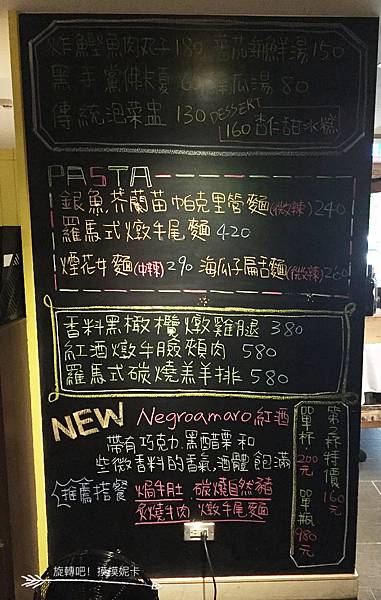 炸鰹魚肉丸子 180 番茄海鮮湯 150
黑手黨佛卡夏 南瓜湯 80
傳統泡菜盅 130 DESSERT
160 炸甜冰糕
PASTA
銀魚芥蘭苗帕克里管麵(微辣) 240
羅馬式燉牛尾麵 420
煙花女麵(中辣) 290 海瓜子扁舌麵(微辣) 260
香料黑橄欖燉雞腿 380
紅酒燉牛臉頰肉 580
羅馬式碳燒羔羊排 580
NEW Negroamaro 紅酒
帶有巧克力.黑醋栗和
些微香料的香氣,酒體飽滿
推薦搭餐
焗牛肚 碳燒自然豬
炙燒牛肉 燉牛尾麵
第2杯特價160元
單杯200元 單瓶980元
旋轉吧! 摸摸妮卡